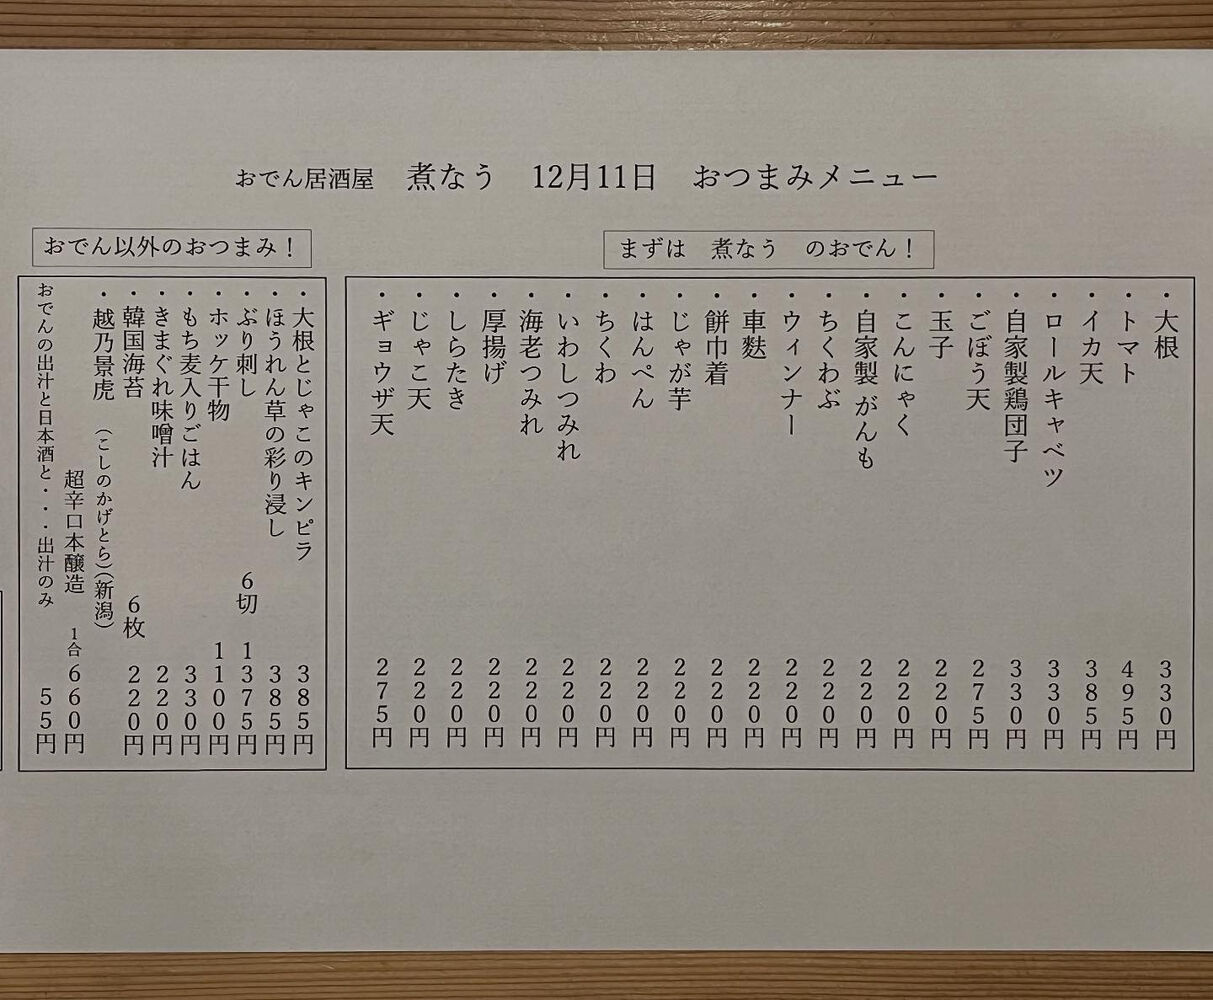 おでん居酒屋　煮なう　12月11日　おつまみメニュー
まずは　煮なう　のおでん！
・大根　330円
・トマト　495円
・イカ天　385円
・ロールキャベツ　330円
・自家製鶏団子　330円
・ごぼう天　275円
・玉子　220円
・こんにゃく　220円
・自家製がんも　220円
・ちくわぶ　220円
・ウィンナー　220円
・車麩　220円
・餅巾着　220円
・じゃが芋　220円
・はんぺん　220円
・ちくわ　220円
・いわしつみれ　220円
・海老つみれ　220円
・厚揚げ　220円
・しらたき　220円
・じゃこ天　220円
・ギョウザ天　275円
おでん以外のおつまみ！
・大根とじゃこのキンピラ　385円
・ほうれん草の彩り浸し　385円
・ぶり刺し　6切　1375円
・ホッケ干物　1100円
・もち麦入りごはん　330円
・きまぐれ味噌汁　220円
・韓国海苔　6枚　220円
・越乃景虎　（こしのかげとら）（新潟）
超辛口本醸造　1合　660円
おでんの出汁と日本酒と・・・出汁のみ　55円